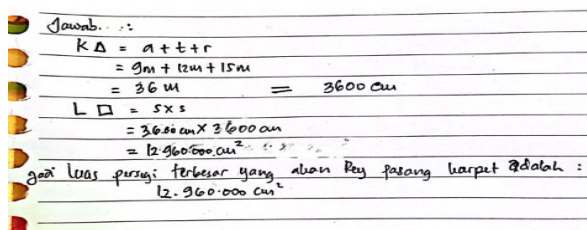 Jawab...:
K Δ = a + t + r
= 9m + 12m + 15m
= 36 m = 3600 cm
L □ = s x s
= 3600 cm x 3600 cm
= 12.960.000 cm²
Jadi luas persegi terbesar yang akan Rey pasang karpet adalah :
12.960.000 cm²